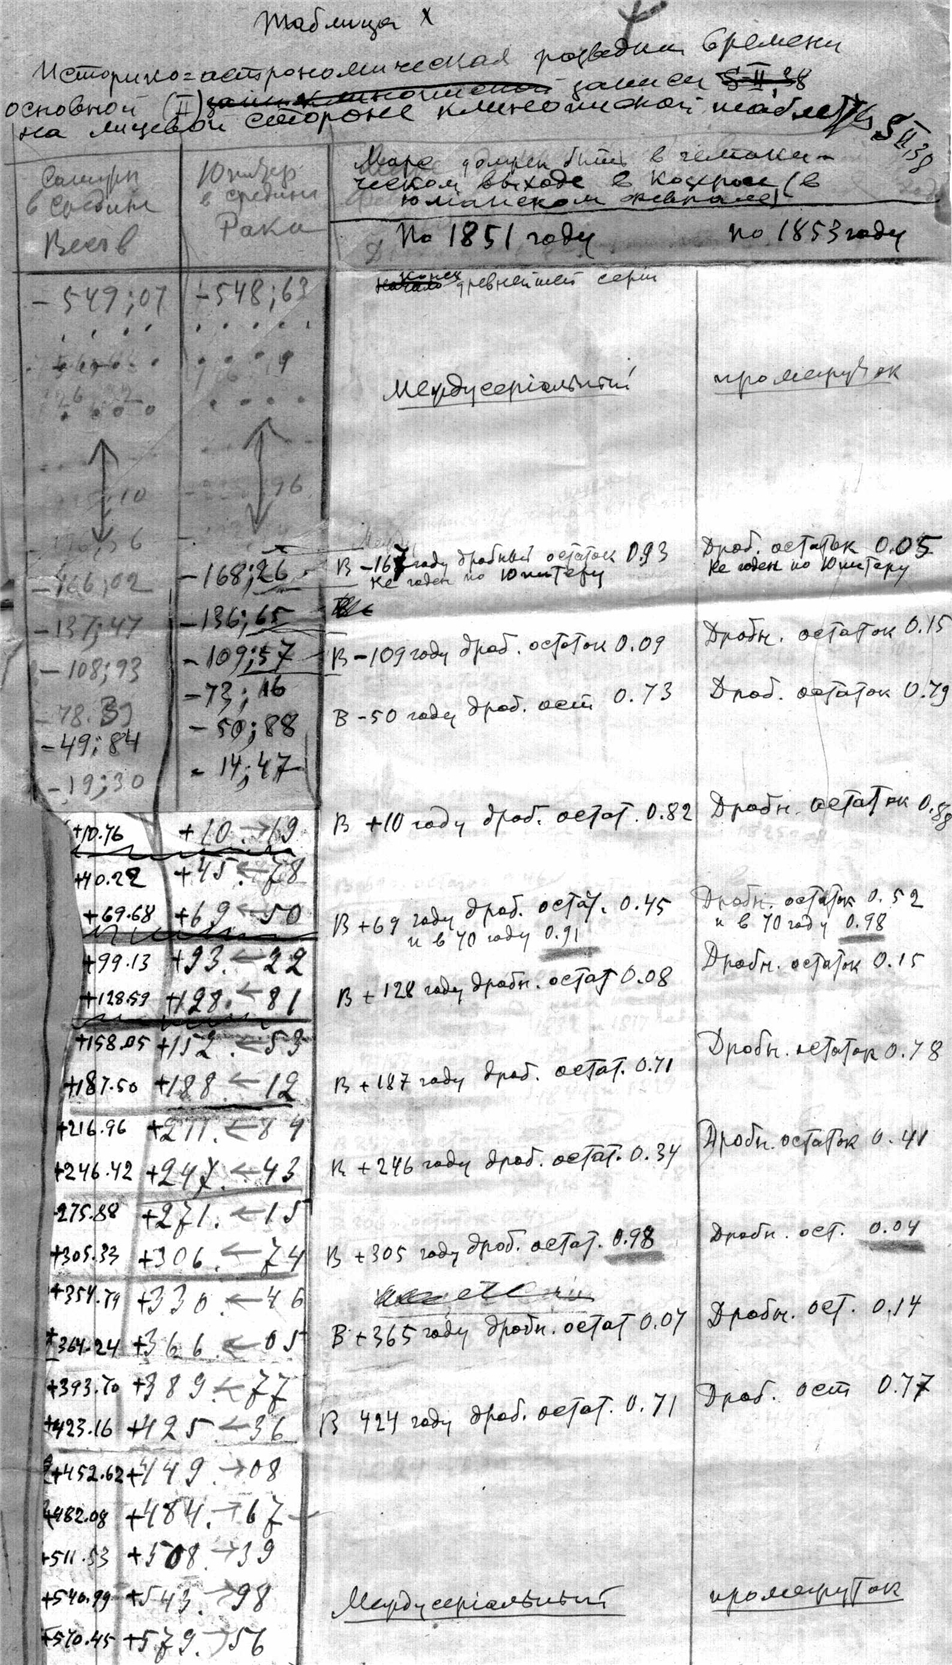 Таблица X
Историко=астрономическая разведка времени
основной (II) записи
на лицевой стороне клинописной таблетки SII30
Сатурн
в средине
Весов
Юпитер
в средине
Рака
Марс должен быть в гелиаки-
ческом выходе в Козероге (в
юлианском феврале)
по 1851 году
по 1853 году
-549;07 -548;63 конец древнейшей серіи
Междусеріальный промежуток
-166;02 -168;26 В -167 году дробный остаток 0.93 Дроб. остаток 0.05
Не годен по Юпитеру Не годен по Юпитеру
-137;47 -136;65
-108;93 -109;57 В -109 году дроб. остаток 0.09 Дробн. остаток 0.15
-78.39 -73;16
-49;84 -50;88 В -50 году дроб. ост 0.73 Дроб. остаток 0.79
-19;30 -14;47
+10.76 +10.→19 В +10 году дроб. остат. 0.82 Дробн. остаток 0.88
+40.22 +45.←78
+69.68 +69←50 В +69 году дроб. остат. 0.45 Дробн. остаток 0.52
и в 70 году 0.91 и в 70 году 0.98
+99.13 +93.←22 Дробн. остаток 0.15
+128.59 +128.←81 В +128 году дробн. остат 0.08
+158.05 +152.←53 Дробн. остаток 0.78
+187.50 +188←12 В +187 году дроб. остат. 0.71
+216.96 +211.←84 Дробн. остаток 0.41
+246.42 +247.←43 В +246 году дроб. остат. 0.34
+275.88 +271.←15 Дробн. ост. 0.04
+305.33 +306←74 В +305 году дроб. остат. 0.98
+334.79 +330.←46 Дробн. ост. 0.14
+364.24 +366←05 В +365 году дробн. остат 0.07
+393.70 +389←77 Дроб. ост 0.77
+423.16 +425←36 В 424 году дроб. остат. 0.71
+452.62 +449.→08
+482.08 +484.→67
+511.53 +508.→39
+540.99 +543.→98 Междусеріальный промежуток
+570.45 +579.→56